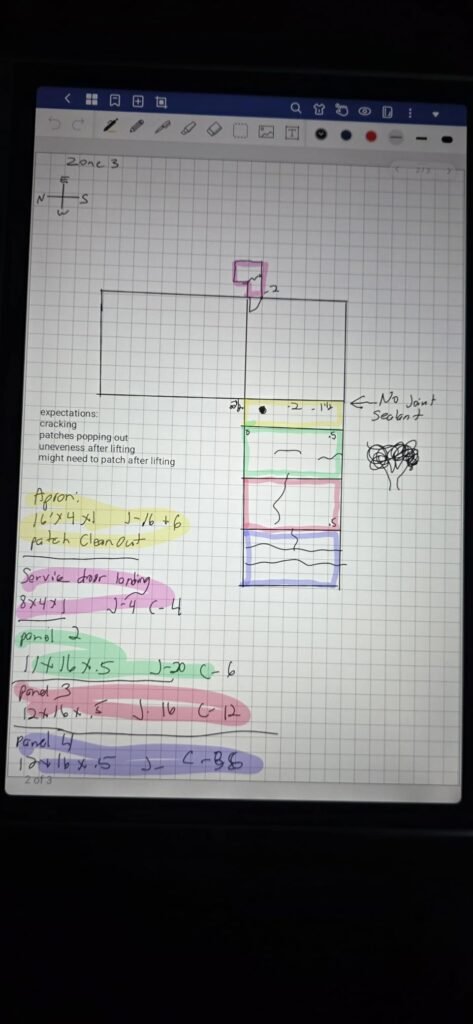 Zone 3
E
N S
W
2
.2 - 1¾
← No Joint
Sealant
0 .5
.5
expectations:
cracking
patches popping out
uneveness after lifting
might need to patch after lifting
Apron:
16'x4x1 J-16+6
patch cleanout
Service door landing
8x4x1 J-4 C-4
panel 2
11x16x.5 J-20 C-6
panel 3
12x16x.5 J-16 C-12
panel 4
12x16x.5 J- C-
2 of 3